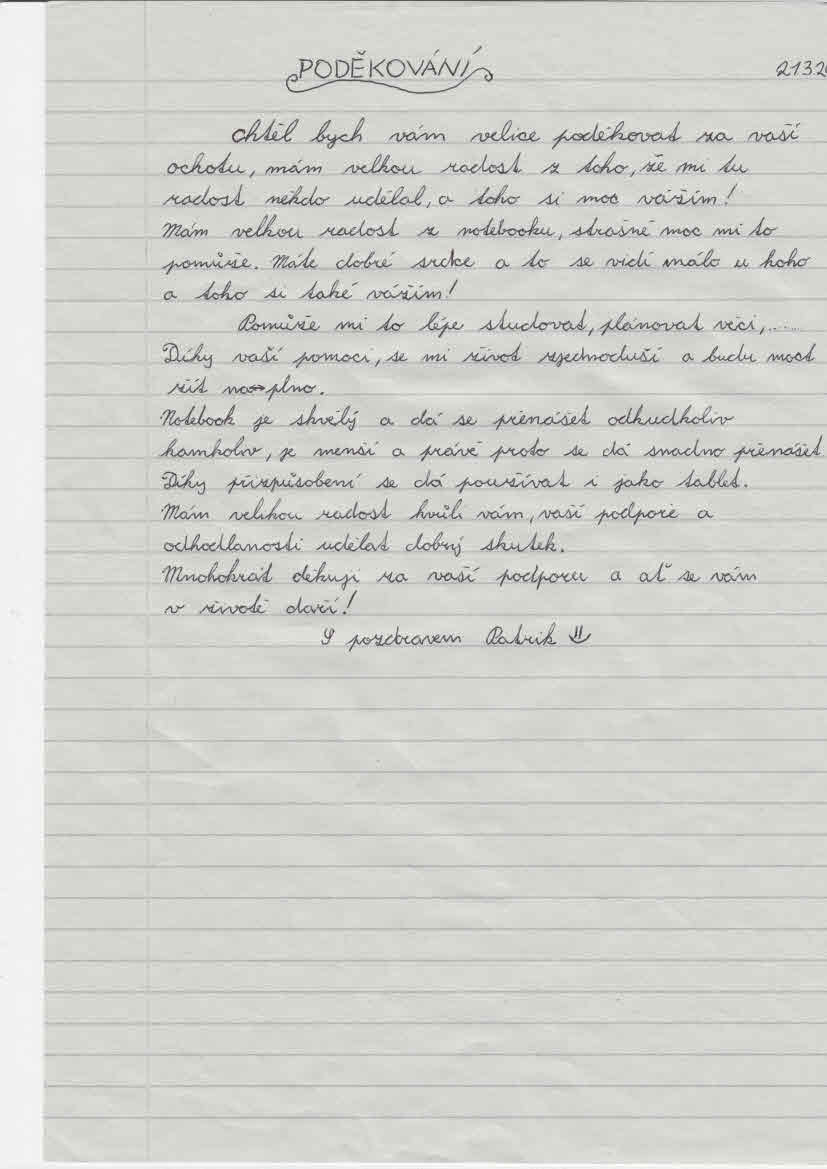 PODĚKOVÁNÍ
21.3.20
Chtěl bych vám velice poděkovat za vaší
ochotu, mám velkou radost z toho, že mi tu
radost někdo udělal, a toho si moc vážím!
Mám velkou radost z notebooku, strašně moc mi to
pomůže. Máte dobré srdce a to se vidí málo u koho
a toho si také vážím!
Pomůže mi to lépe studovat, plánovat věci,......
Díky vaší pomoci, se mi život zjednoduší a budu moct
žít na plno.
Notebook je skvělý a dá se přenášet odkudkoliv
kamkoliv, je menší a právě proto se dá snadno přenášet.
Díky přizpůsobení se dá používat i jako tablet.
Mám velikou radost kvůli vám, vaší podpoře a
odhodlanosti udělat dobrý skutek.
Mnohokrát děkuji za vaší podporu a ať se vám
v životě daří!
S pozdravem Patrik